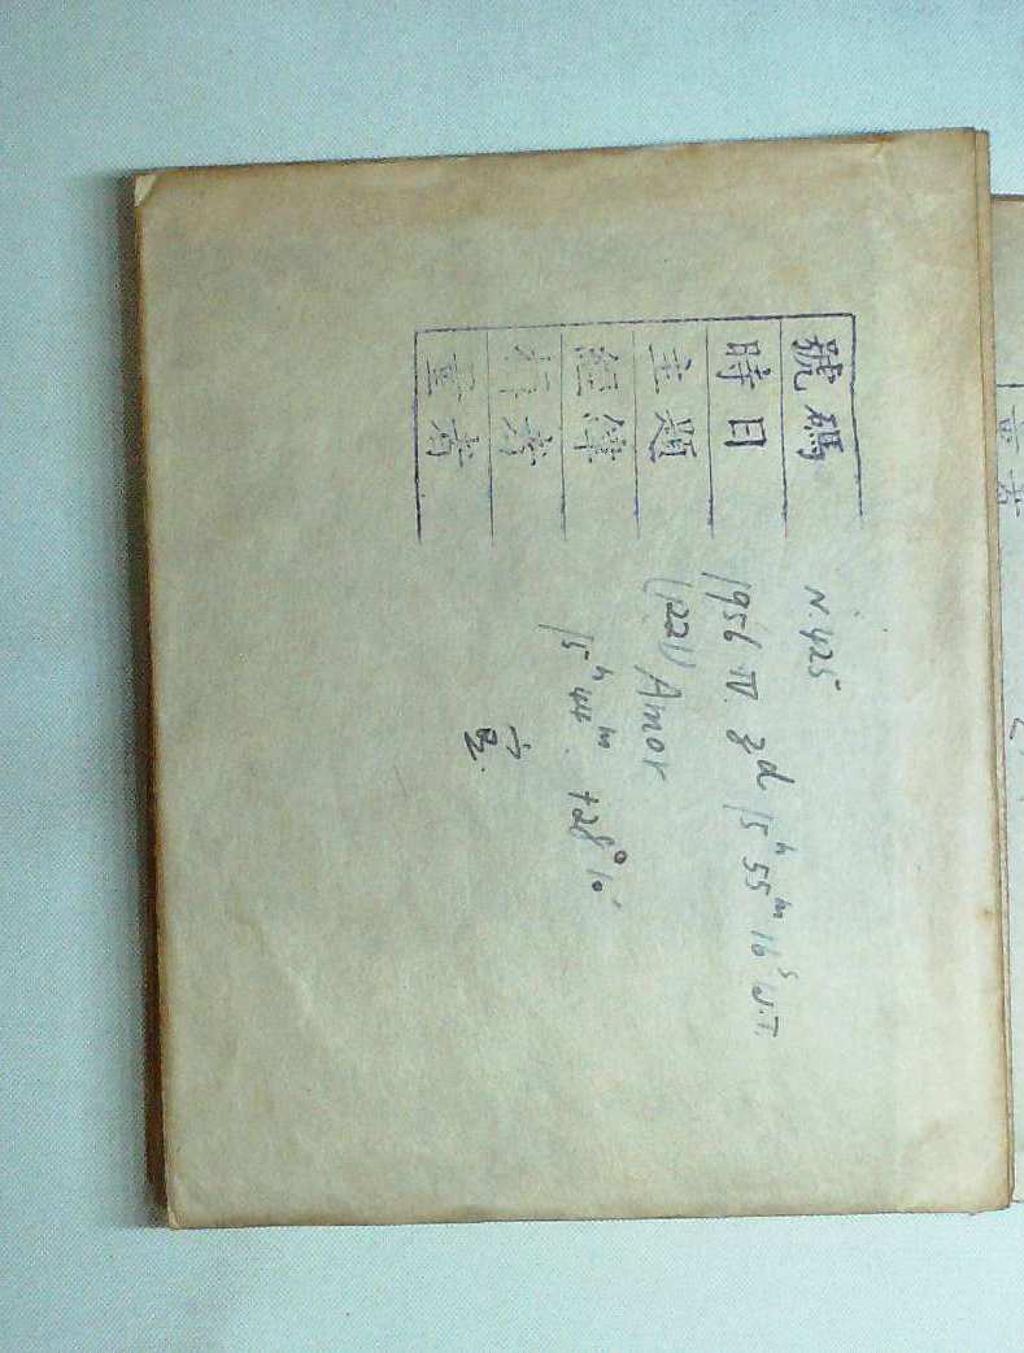 號碼 N. 425
時日 1956 IV. 3d 15h 55m 16s W.T.
主題 (1221) Amor
經緯 15h 44m. +28°10′
作者
畫者